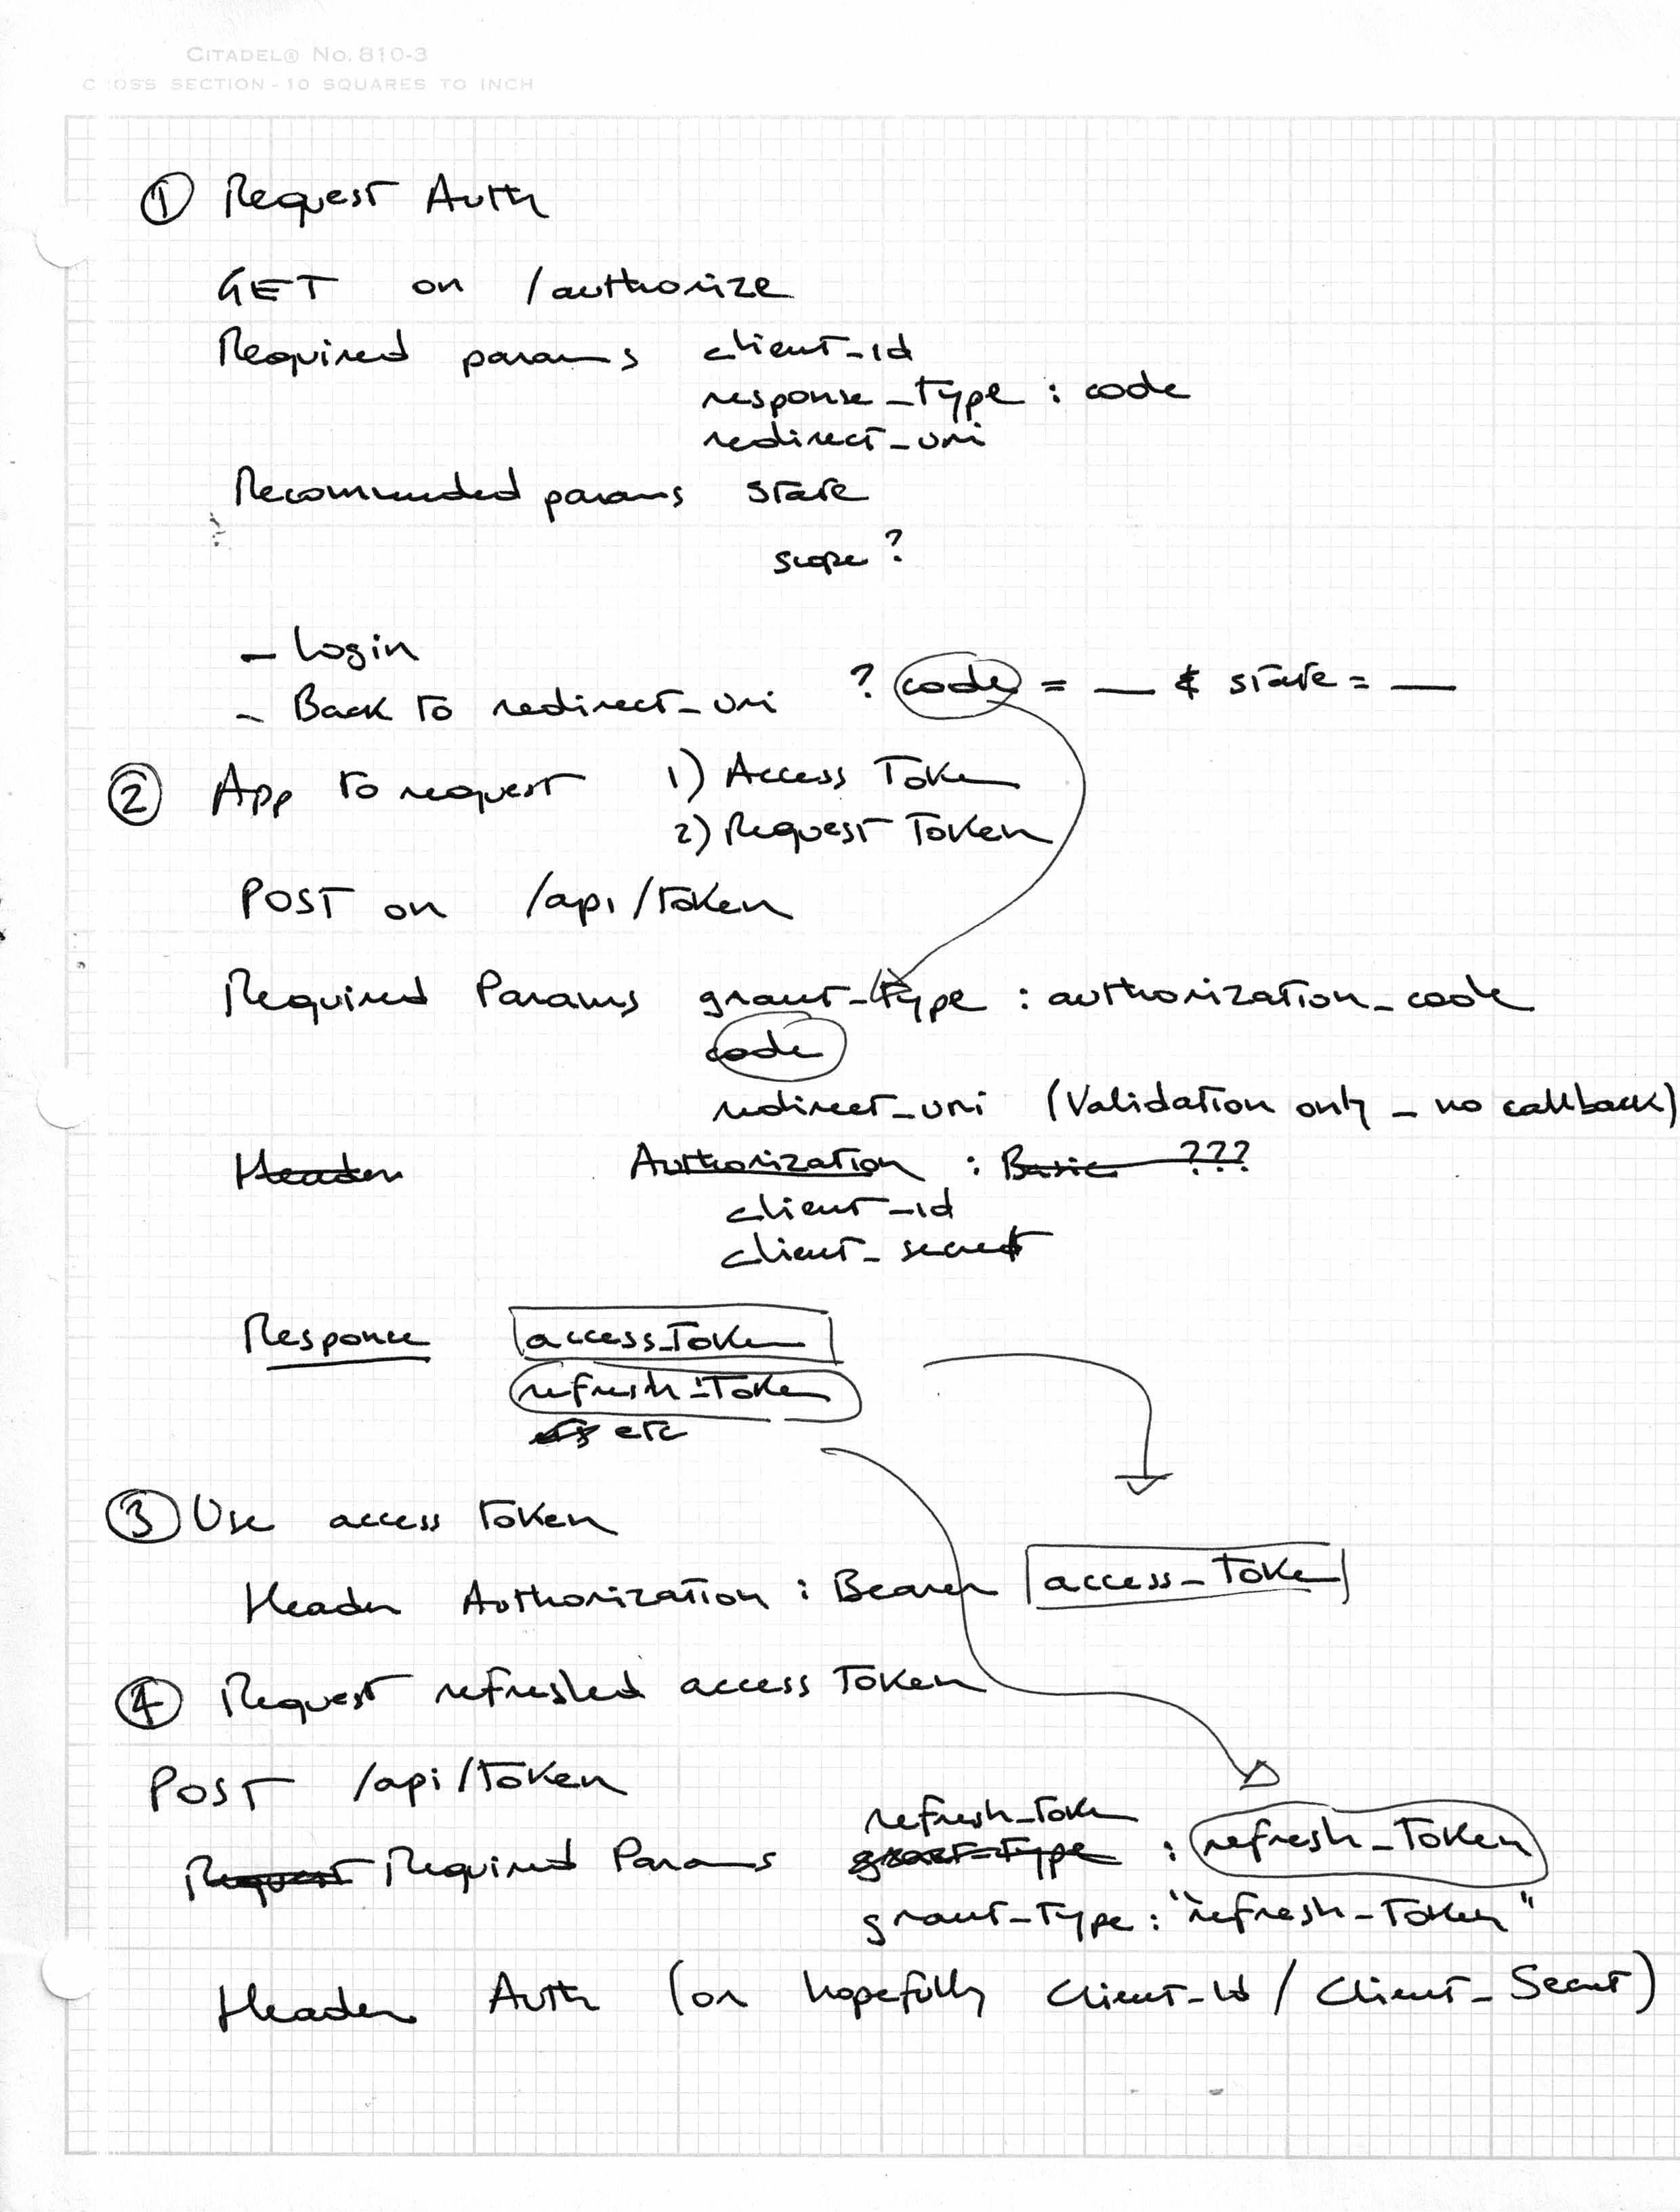 CITADEL® NO. 810-3
CROSS SECTION - 10 SQUARES TO INCH
① Request Auth
GET on /authorize
Required params client_id
response_type : code
redirect_uri
Recommended params state
scope ?
- Login
- Back to redirect_uri ? code = __ & state = __
② App to request 1) Access Token
2) Request Token
POST on /api/token
Required Params grant_type : authorization_code
code
redirect_uri (Validation only - no callback)
Header Authorization : Basic ???
client_id
client_secret
Response access_token
refresh_token
etc
③ Use access token
Header Authorization : Bearer access_token
④ Request refreshed access token
POST /api/token
refresh_token
Request Required Params grant_type : refresh_token
grant_type : "refresh_token"
Header Auth (or hopefully Client_Id / Client_Secret)